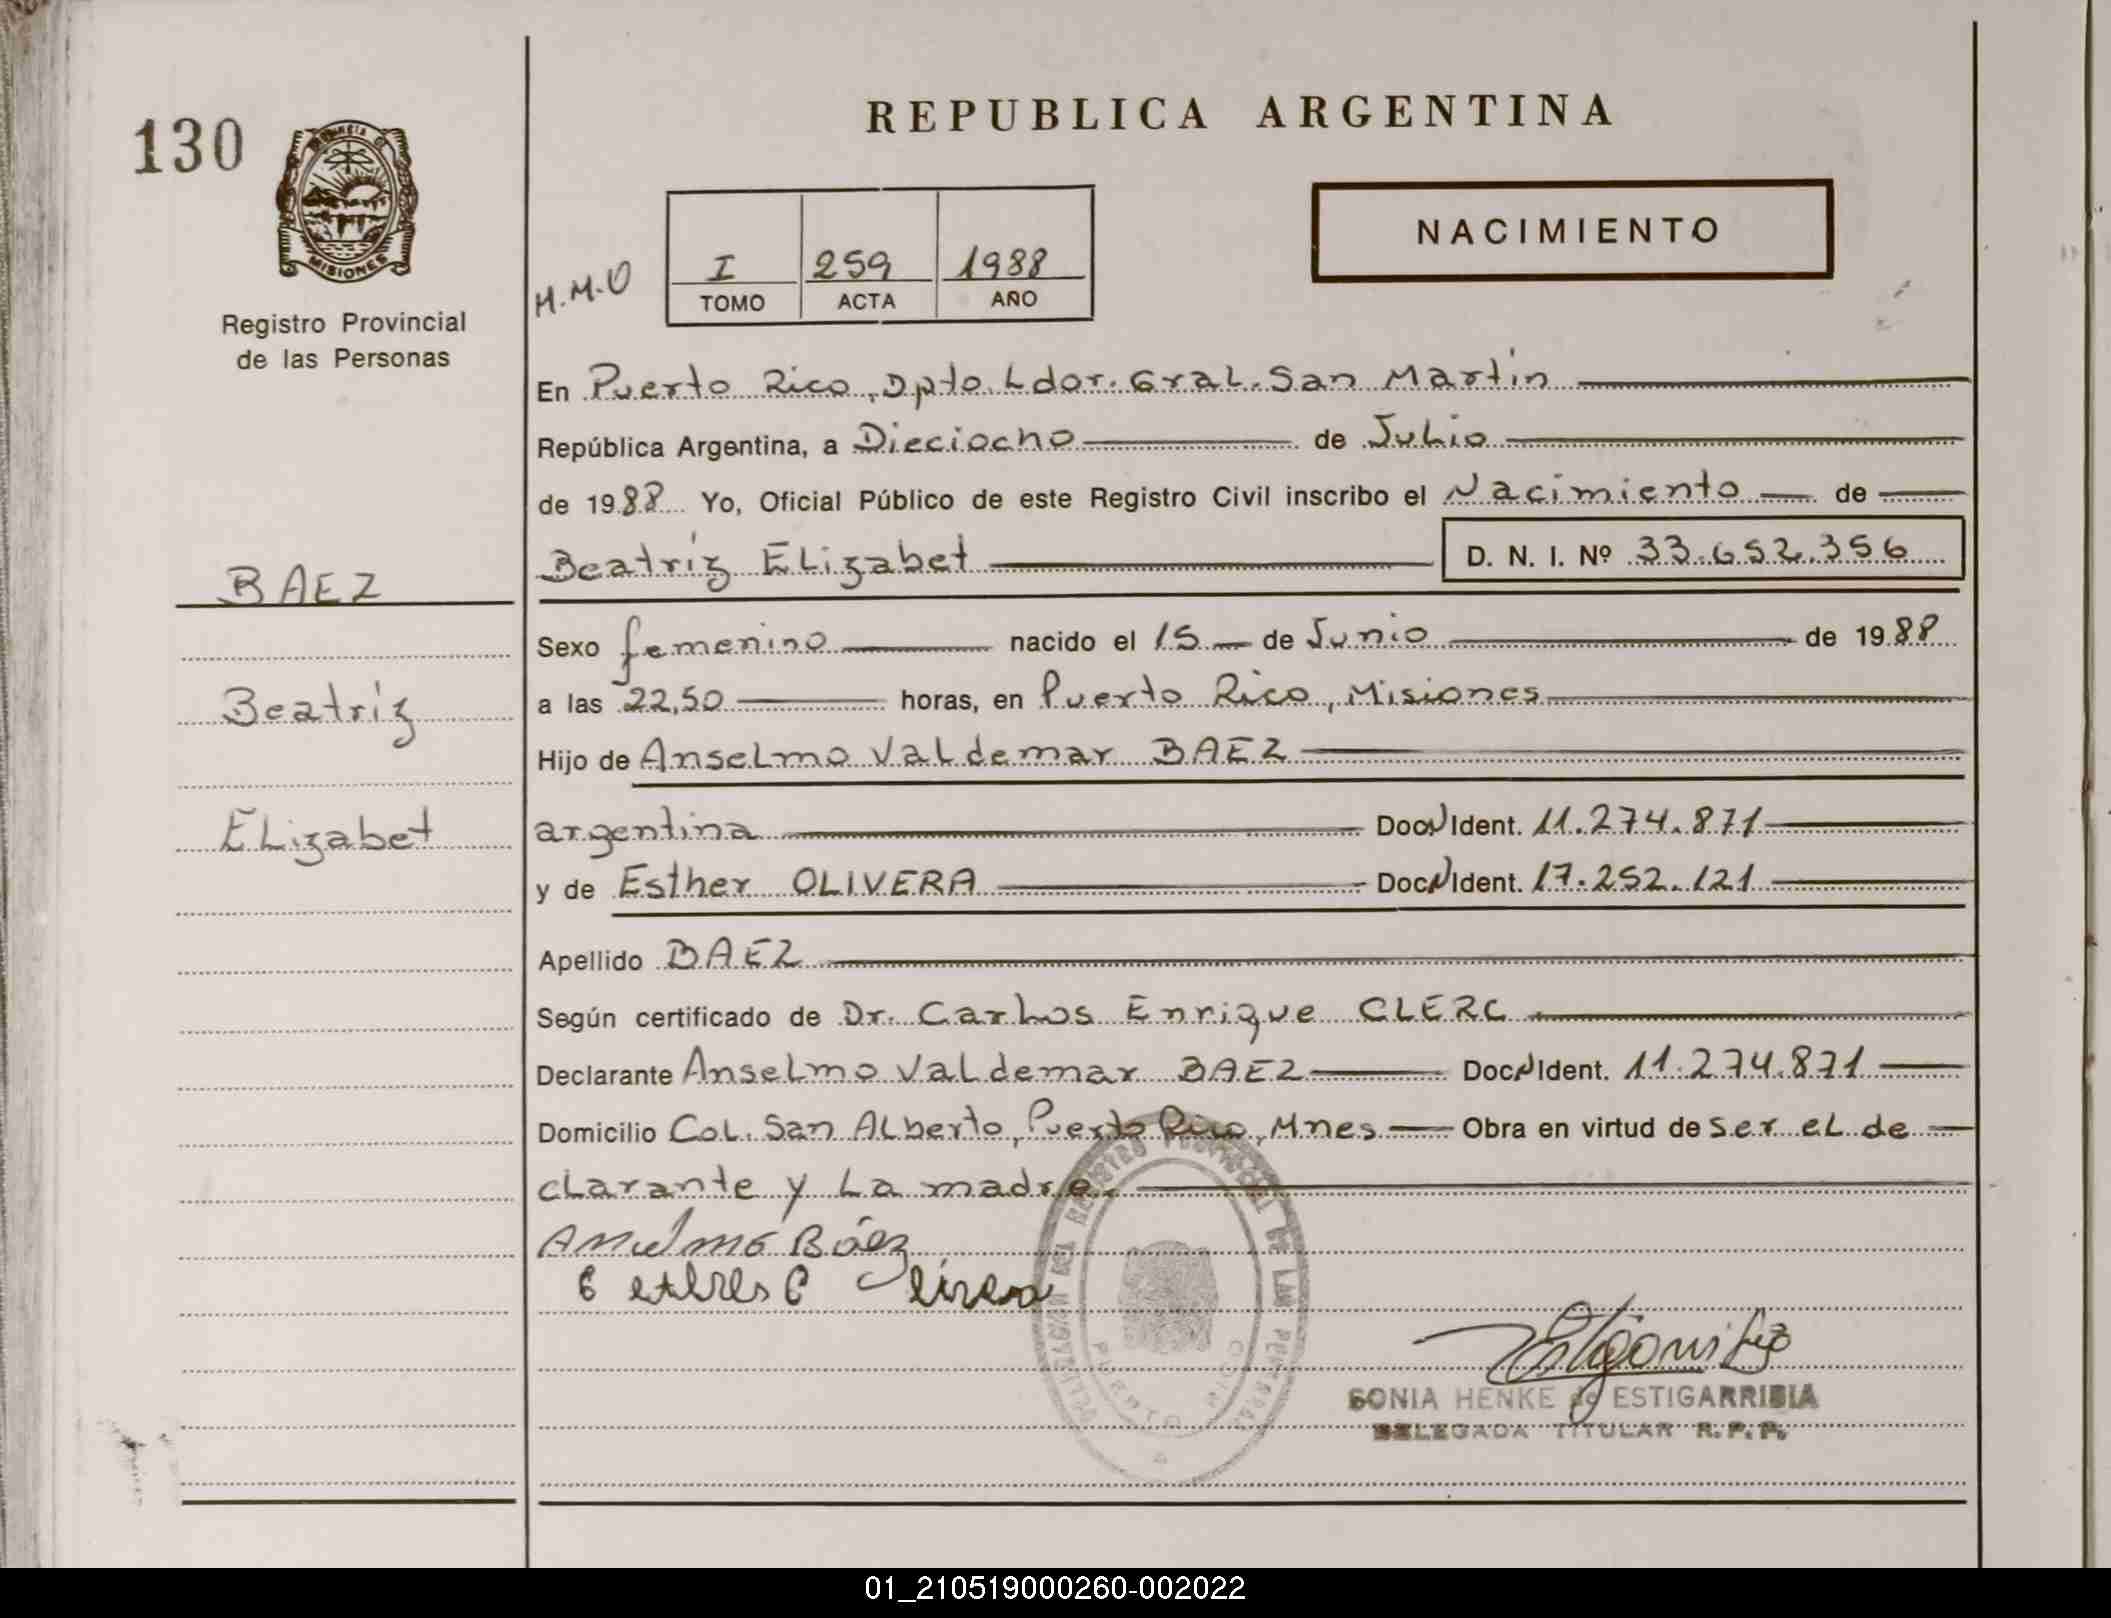 130
REPUBLICA ARGENTINA
NACIMIENTO
MISIONES
Registro Provincial
de las Personas
H.M.O
I 259 1988
TOMO ACTA AÑO
En Puerto Rico, Dpto. Ldor. Gral. San Martín
República Argentina, a Dieciocho de Julio
de 1988 Yo, Oficial Público de este Registro Civil inscribo el Nacimiento de
Beatríz Elizabet D. N. I. Nº 33.652.356
BAEZ
Beatríz
Elizabet
Sexo femenino nacido el 15 de Junio de 1988
a las 22,50 horas, en Puerto Rico, Misiones
Hijo de Anselmo Valdemar BAEZ
argentina Doc. Ident. 11.274.871
y de Esther OLIVERA Doc. Ident. 17.252.121
Apellido BAEZ
Según certificado de Dr. Carlos Enrique CLERC
Declarante Anselmo Valdemar BAEZ Doc. Ident. 11.274.871
Domicilio Col. San Alberto, Puerto Rico, Mnes Obra en virtud de ser el de
clarante y la madre.
Anselmo Báez
DELEGACION DEL REGISTRO PROVINCIAL DE LAS PERSONAS
PUERTO RICO
SONIA HENKE de ESTIGARRIBIA
DELEGADA TITULAR R.P.P.
01_210519000260-002022